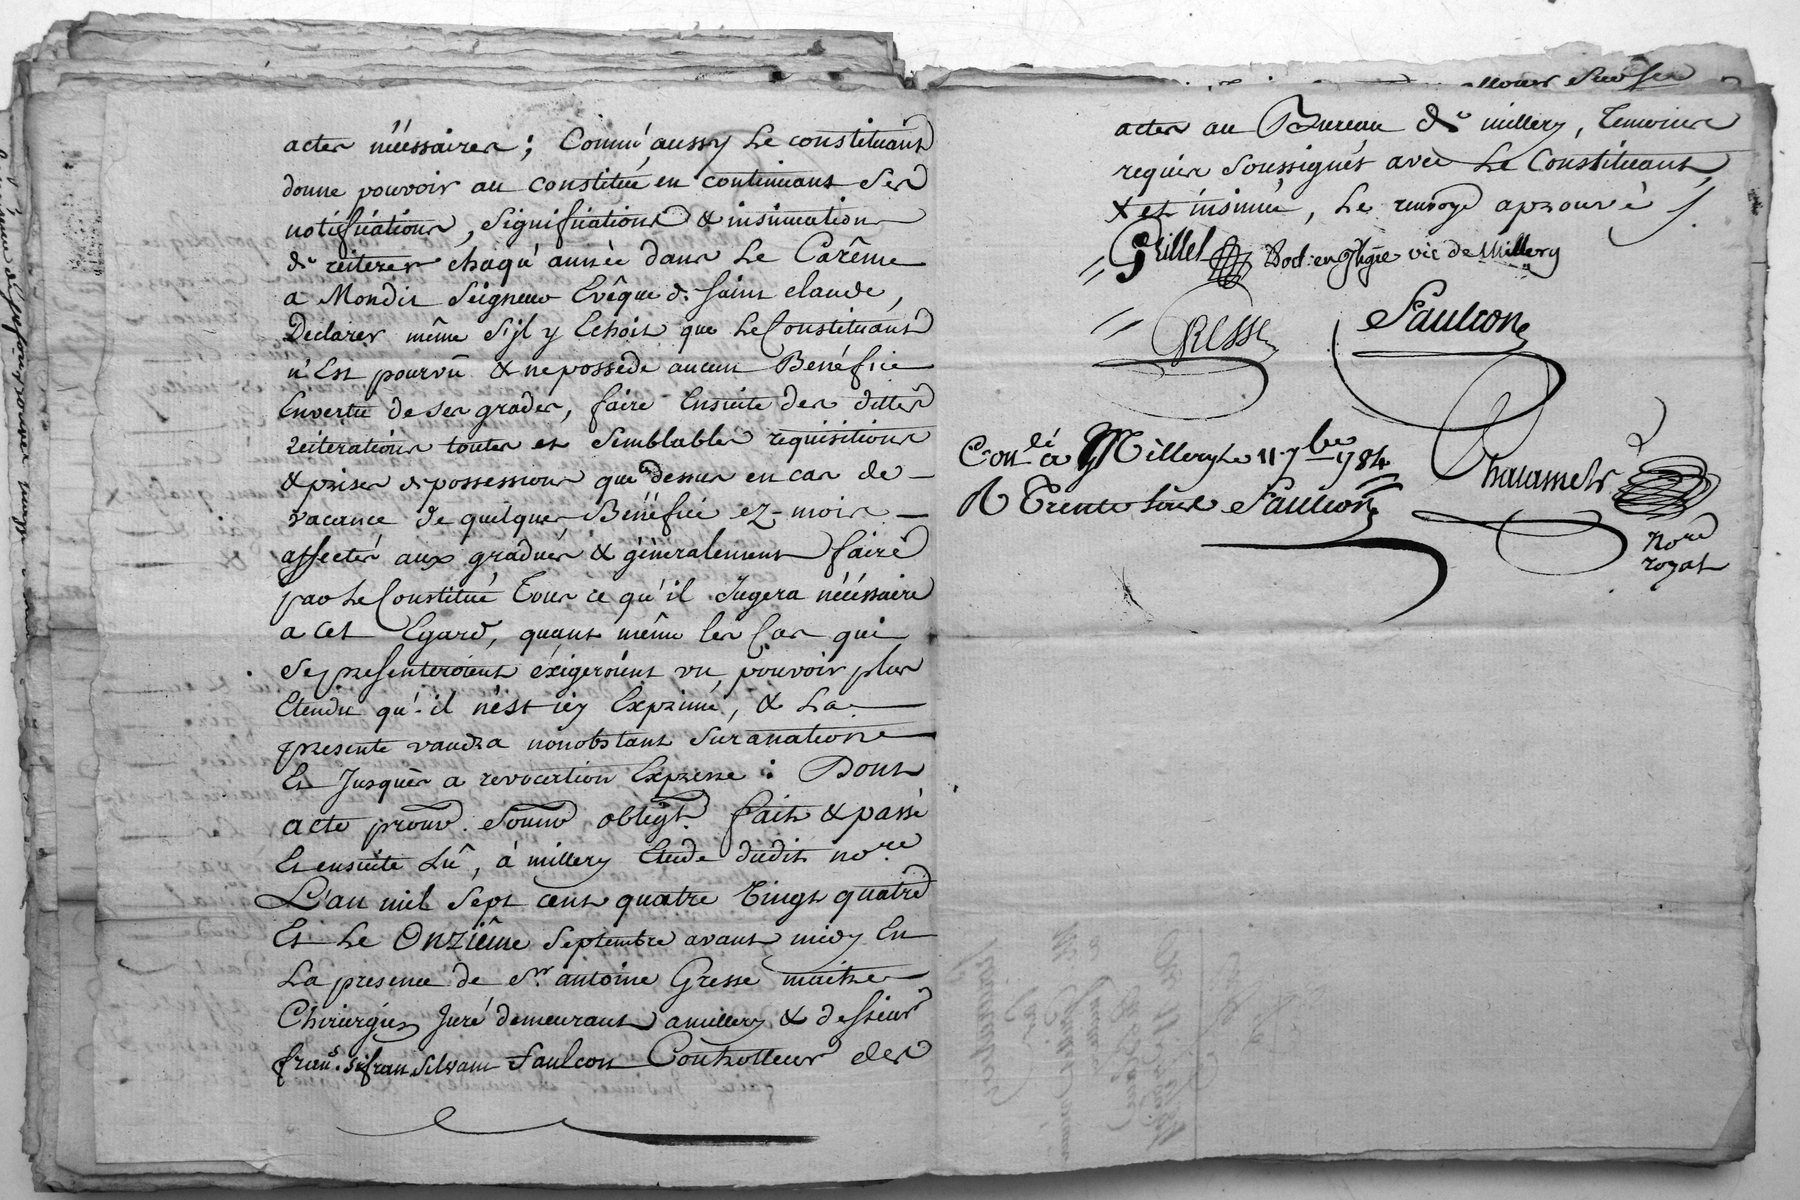 actes nécéssaires; Comme aussy Le constituant
donne pouvoir au constitué en continuant Ses
notifications, Significations & insinuations
de reiterer chaqu'année dans Le Carême
a Mondit Seigneur Evêque de saint claude,
Declarer même S'jl y Echoit que Le Constituant
n'Est pourvû & ne possede aucun Bénéfice
Envertu de ses grades, faire Ensuite des dittes
reiterations toutes et Semblables requisitions
& prises de possessions que dessus en cas de
vacance de quelques Bénéfice ez-mois
affectés aux gradués & généralement faire
par Le Constitué Tous ce qu'il Jugera nécéssaire
a cet Egard, quant même les Cas qui
Se presenteroient éxigeroient un pouvoir plus
Etendu qu'il n'ést icy Exprimé, & La
presente vaudra nonobstant Suranation
Et Jusques a revocation Expresse: Dont
acte prom. Soum. obligt. fait & passé
Et ensuite Lû, á millery Etude dudit nore
L'an mil Sept cent quatre Vingt quatre
Et Le Onziême Septembre avant midy En
La presence de Sr. antoine Gresse maitre
Chirurgien Juré demeurant a millery & de Sieur
Silvain Faulcon Controlleur des
actes au Bureau de millery, Temoins
requis Soussignés avec Le Constituant,
X et insinué, Le renvoye aprouvé
Grillet vic de Millery
GRESSE
Faulcon
Conlé a Millery Le 11 7bre 1784
R Trente sols Faulcon
Chalamel
Nore
royal